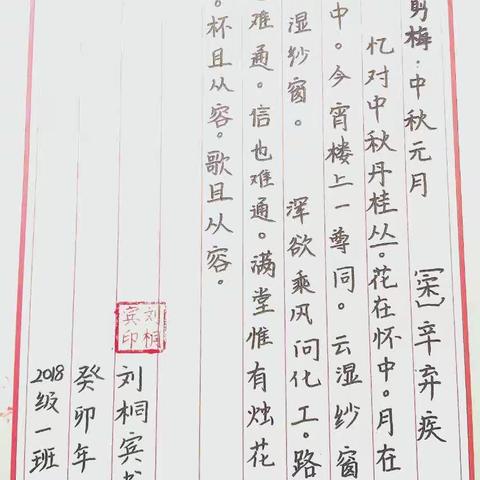 剪梅·中秋元月 〔宋〕辛弃疾
忆对中秋丹桂丛。花在怀中。月在
中。今宵楼上一尊同。云湿纱窗
湿纱窗。 浑欲乘风问化工。路
也难通。信也难通。满堂惟有烛花
。杯且从容。歌且从容。
刘桐
宾印
刘桐宾书
癸卯年
2018级一班